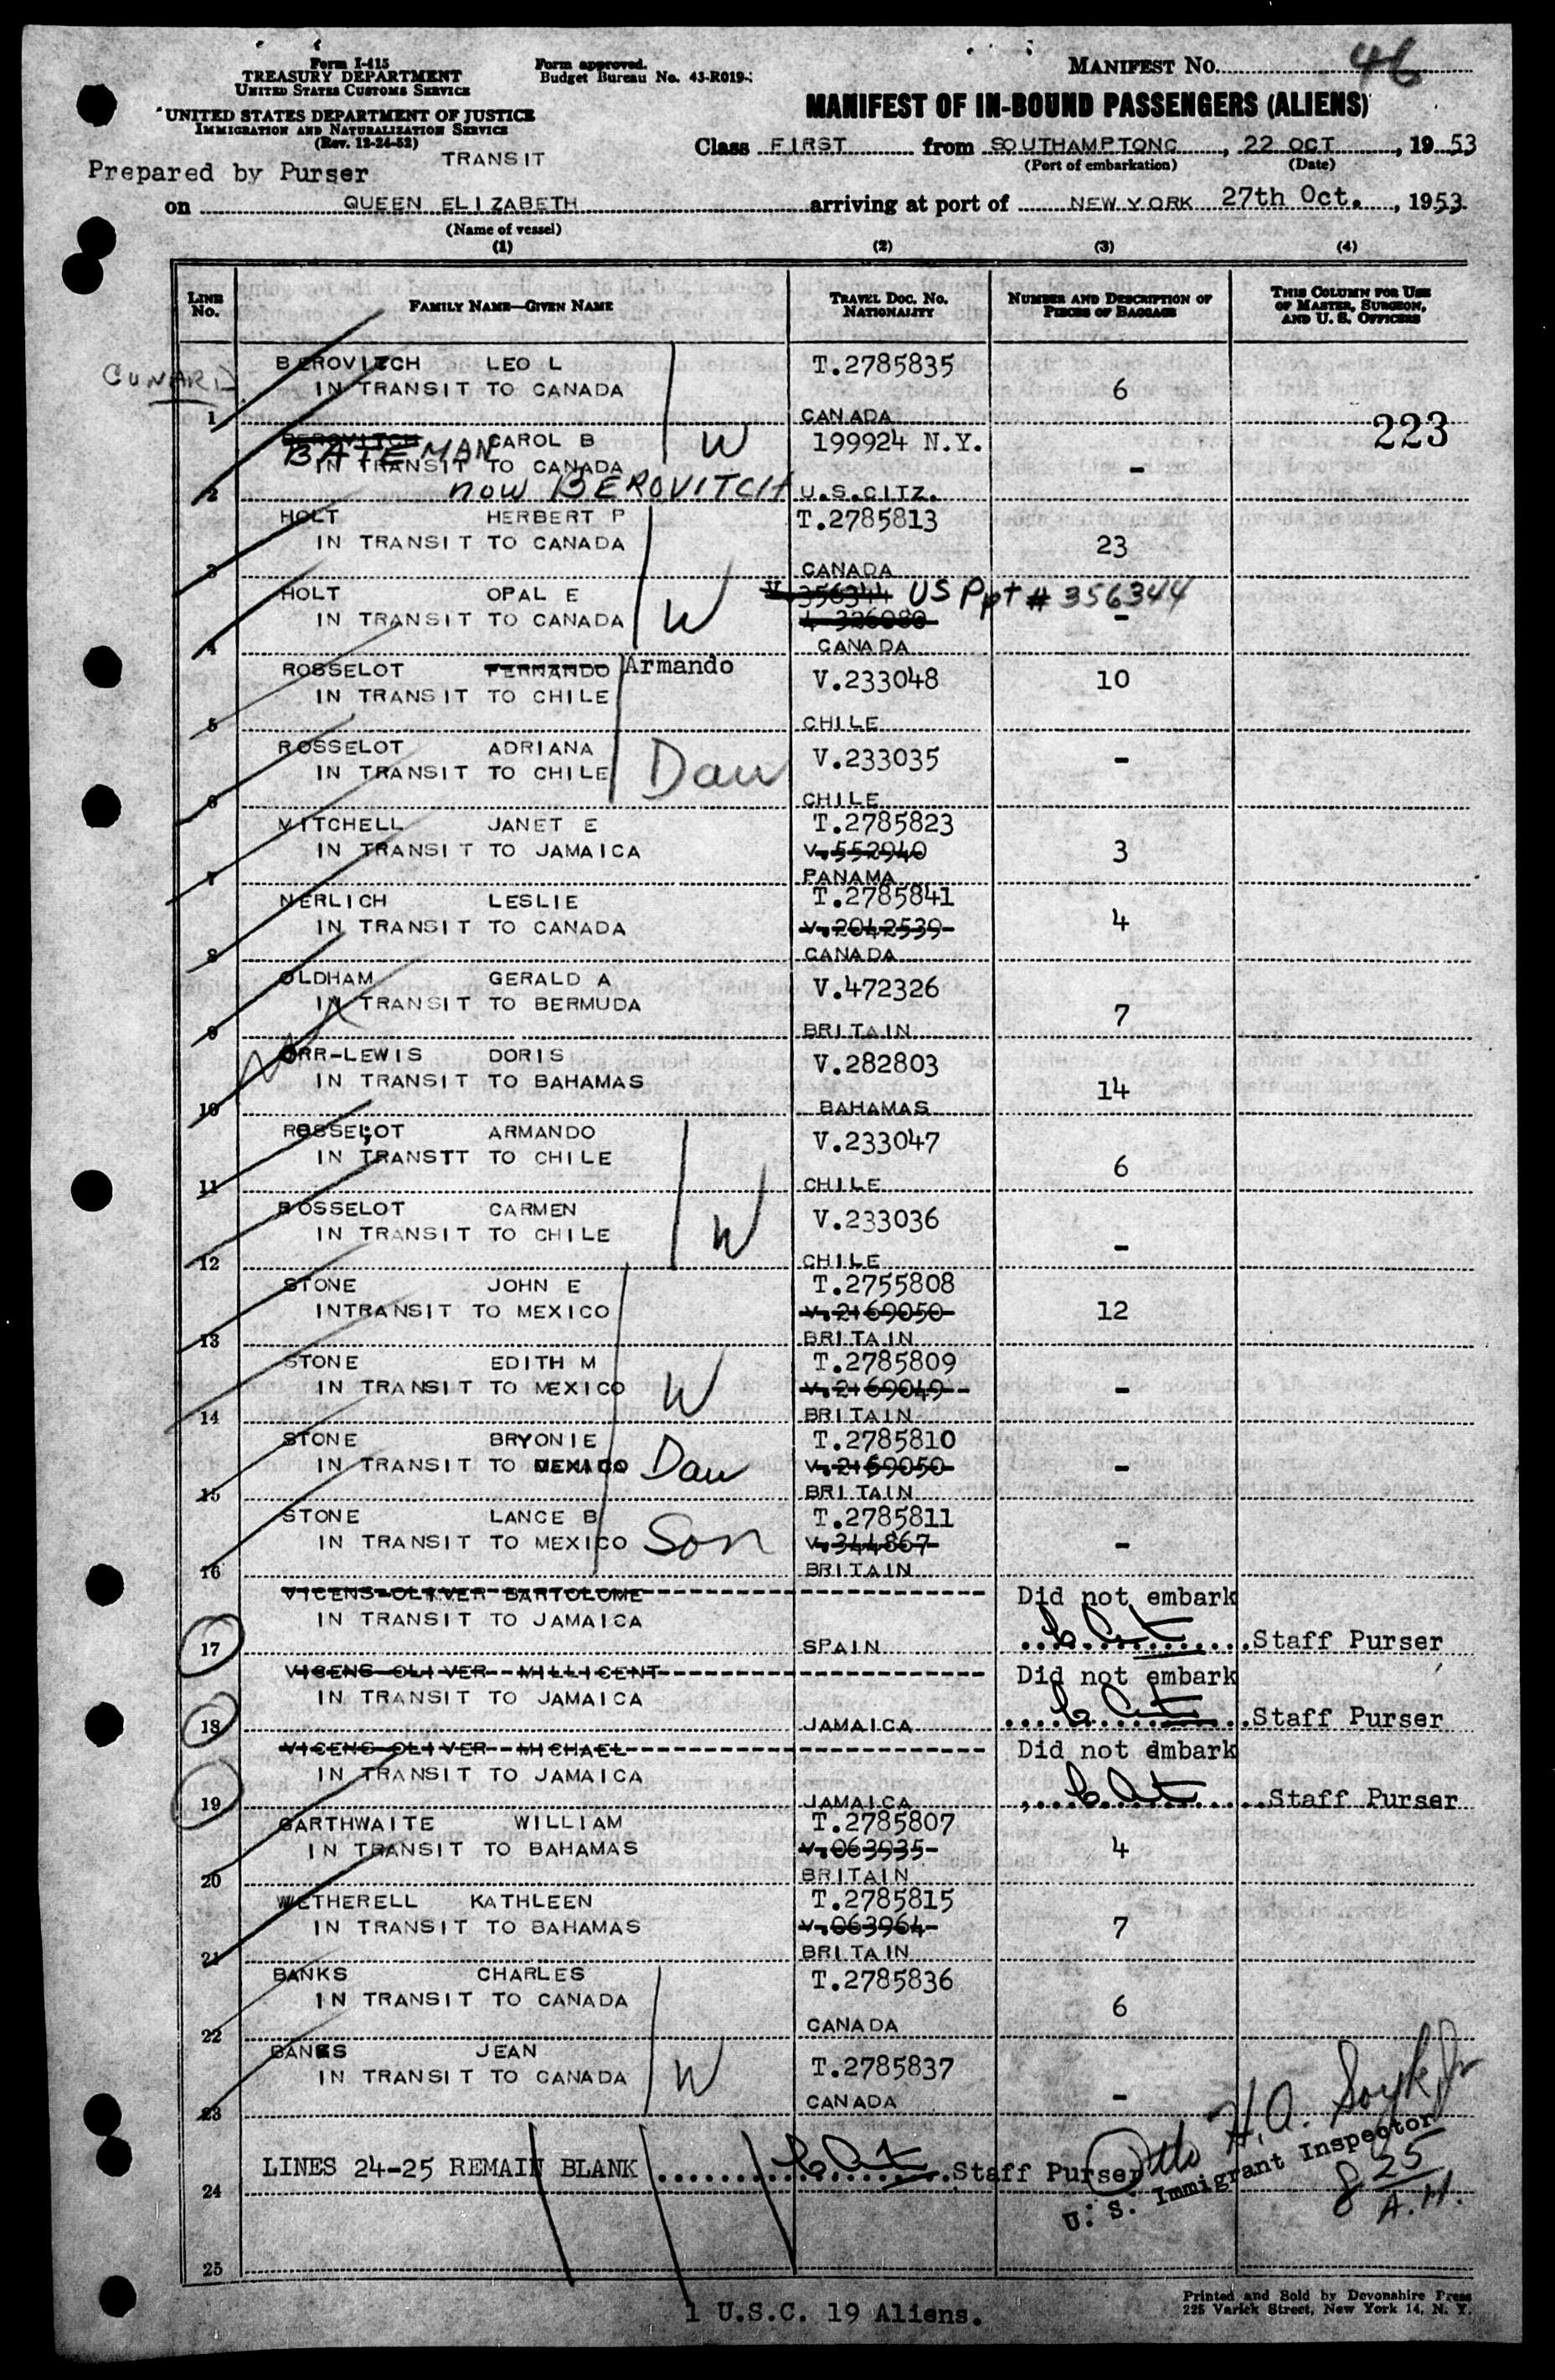 Form I-415
TREASURY DEPARTMENT
UNITED STATES CUSTOMS SERVICE
UNITED STATES DEPARTMENT OF JUSTICE
IMMIGRATION AND NATURALIZATION SERVICE
(Rev. 12-24-52)
Form approved.
Budget Bureau No. 43-R019-
MANIFEST NO. 46
MANIFEST OF IN-BOUND PASSENGERS (ALIENS)
Class FIRST from SOUTHAMPTONC, 22 OCT, 19 53
(Port of embarkation) (Date)
TRANSIT
Prepared by Purser
on QUEEN ELIZABETH arriving at port of NEW YORK 27th Oct., 1953
(Name of vessel)
(1) (2) (3) (4)
LINE No. FAMILY NAME—GIVEN NAME TRAVEL DOC. NO. NATIONALITY NUMBER AND DESCRIPTION OF PIECES OF BAGGAGE THIS COLUMN FOR USE OF MASTER, SURGEON, AND U. S. OFFICERS
CUNARD
BEROVITCH LEO L T.2785835
IN TRANSIT TO CANADA 6
1 CANADA
223
BEROVITCH CAROL B W 199924 N.Y.
BATEMAN
IN TRANSIT TO CANADA -
now BEROVITCH
2 U.S.CITZ.
HOLT HERBERT P T.2785813
IN TRANSIT TO CANADA 23
3 CANADA
HOLT OPAL E V.356344 US Ppt # 356344
IN TRANSIT TO CANADA W 4 326080 -
4 CANADA
ROSSELOT FERNANDO Armando V.233048 10
IN TRANSIT TO CHILE
5 CHILE
ROSSELOT ADRIANA V.233035 -
IN TRANSIT TO CHILE Dau
6 CHILE
MITCHELL JANET E T.2785823
IN TRANSIT TO JAMAICA V.552940 3
7 PANAMA
NERLICH LESLIE T.2785841
IN TRANSIT TO CANADA V.2042539 4
8 CANADA
OLDHAM GERALD A V.472326
IN TRANSIT TO BERMUDA 7
9 BRITAIN
ORR-LEWIS DORIS V.282803
IN TRANSIT TO BAHAMAS 14
10 BAHAMAS
ROSSELOT ARMANDO V.233047
IN TRANSTT TO CHILE 6
11 CHILE
ROSSELOT CARMEN V.233036
IN TRANSIT TO CHILE W -
12 CHILE
STONE JOHN E T.2755808
INTRANSIT TO MEXICO V.2169050 12
13 BRITAIN
STONE EDITH M T.2785809
IN TRANSIT TO MEXICO W V.2169049 -
14 BRITAIN
STONE BRYONIE T.2785810
IN TRANSIT TO MEXICO Dau V.2169050 -
15 BRITAIN
STONE LANCE B T.2785811
IN TRANSIT TO MEXICO Son V.344867 -
16 BRITAIN
VICENS-OLIVER BARTOLOME Did not embark
IN TRANSIT TO JAMAICA
17 SPAIN Staff Purser
VICENS OLIVER MILLICENT Did not embark
IN TRANSIT TO JAMAICA
18 JAMAICA Staff Purser
VICENS OLIVER MICHAEL Did not embark
IN TRANSIT TO JAMAICA
19 JAMAICA Staff Purser
GARTHWAITE WILLIAM T.2785807
IN TRANSIT TO BAHAMAS V.063935 4
20 BRITAIN
WETHERELL KATHLEEN T.2785815
IN TRANSIT TO BAHAMAS V.063964 7
21 BRITAIN
BANKS CHARLES T.2785836
IN TRANSIT TO CANADA 6
22 CANADA
BANKS JEAN T.2785837
IN TRANSIT TO CANADA W
23 CANADA -
LINES 24-25 REMAIN BLANK Staff Purser
Otto H.A.
U. S. Immigrant Inspector
8 25 A.M.
24
25
Printed and Sold by Devonshire Press
225 Varick Street, New York 14, N. Y.
1 U.S.C. 19 Aliens.